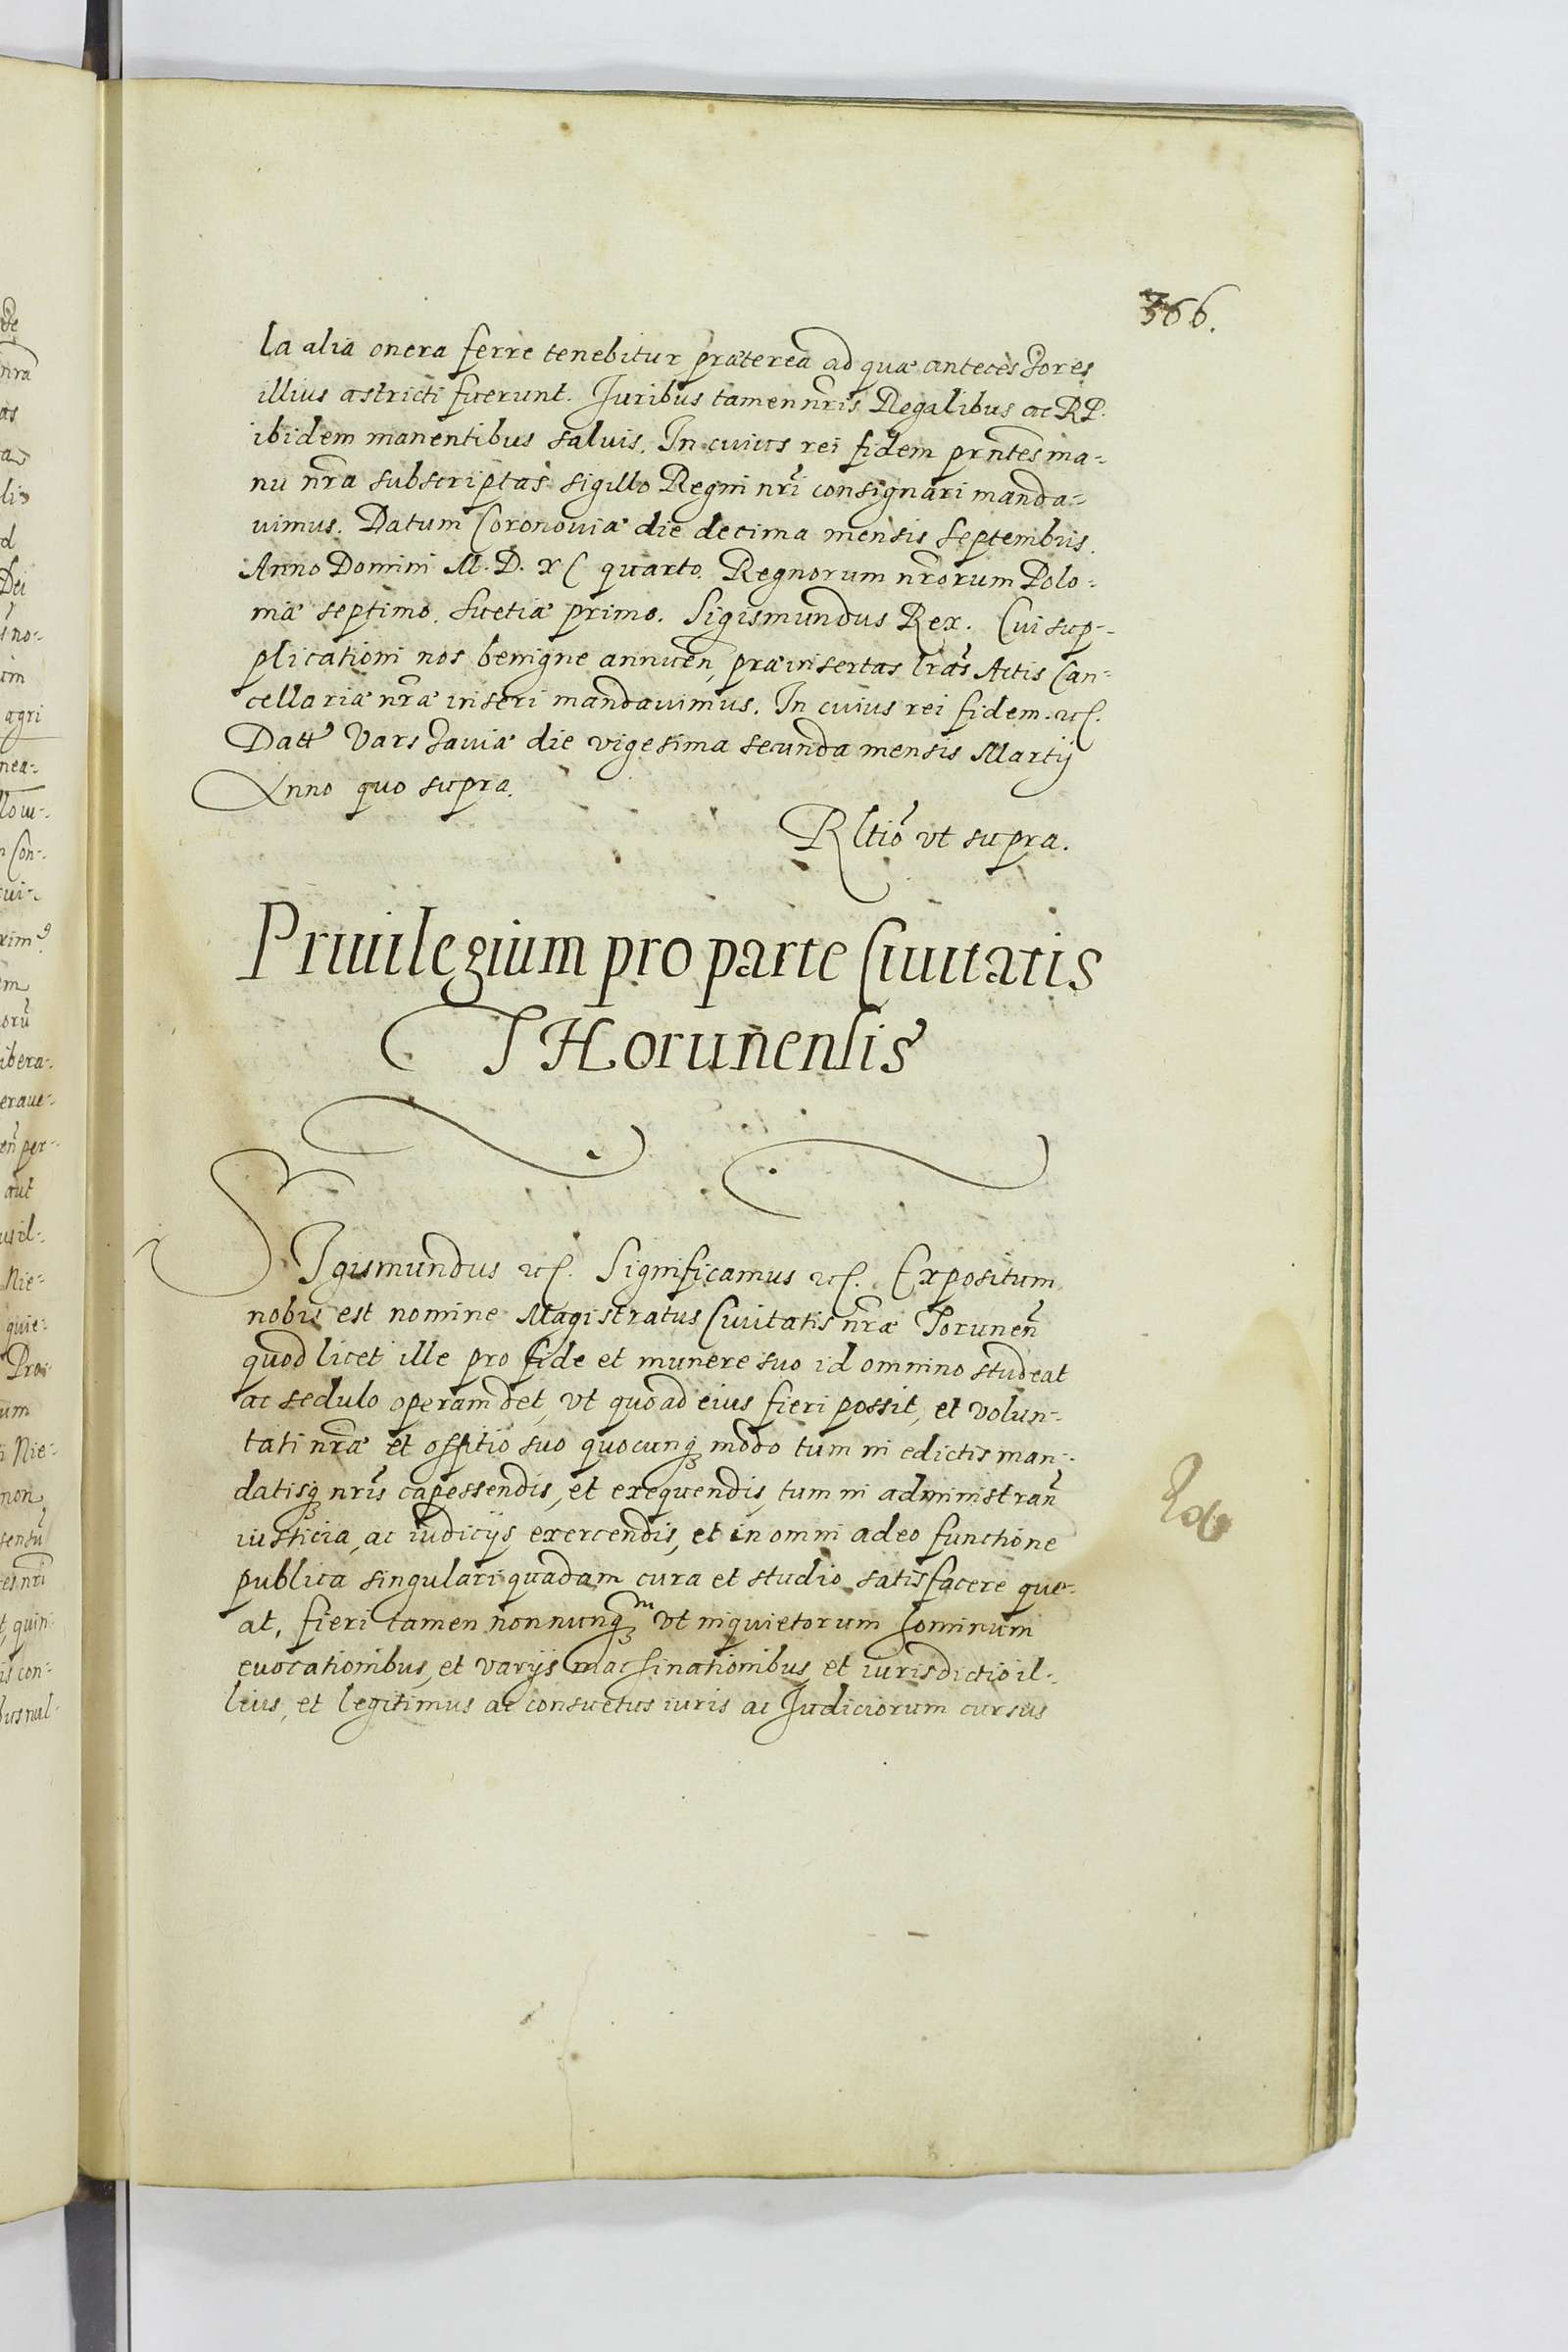 366.
la alia onera ferre tenebitur præterea ad quæ antecessores
illius astricti fuerunt. Juribus tamen nr̃is Regalibus ac RP.
ibidem manentibus saluis. In cuius rei fidem prñtes ma-
nu nr̃a subscriptas sigillo Regni nr̃i consignari manda-
uimus. Datum Coronouiæ die decima mensis Septembris.
Anno Domini M. D. XC quarto. Regnorum nr̃orum Polo-
niæ septimo. Suetiæ primo. Sigismundus Rex. Cui sup-
plicationi nos benigne annuen, præinsertas lr̃as Actis Can-
cellariæ nr̃æ inseri mandauimus. In cuius rei fidem. etc.
Datt Varssauiæ die vigesima secunda mensis Martij
Anno quo supra.
Rltio vt supra.
Priuilegium pro parte Ciuitatis
THorunensis
SIgismundus etc. Significamus etc. Expositum
nobis est nomine Magistratus Ciuitatis nr̃æ Toruneñ
quod licet ille pro fide et munere suo id omnino studeat
ac sedulo operam det, vt quoad eius fieri possit, et volun-
tati nr̃æ et offitio suo quocunq₃ modo tum in edictis man-
datisq₃ nr̃is capessendis, et exequendis, tum in administrañ
iusticia, ac iudicijs exercendis, et in omni adeo functione
publica singulari quadam cura et studio satisfacere que-
at, fieri tamen nonnunq₃m vt inquietorum hominum
euocationibus, et varijs machinationibus et iurisdictio il-
lius, et legitimus ac consuetus iuris ac Judiciorum cursus